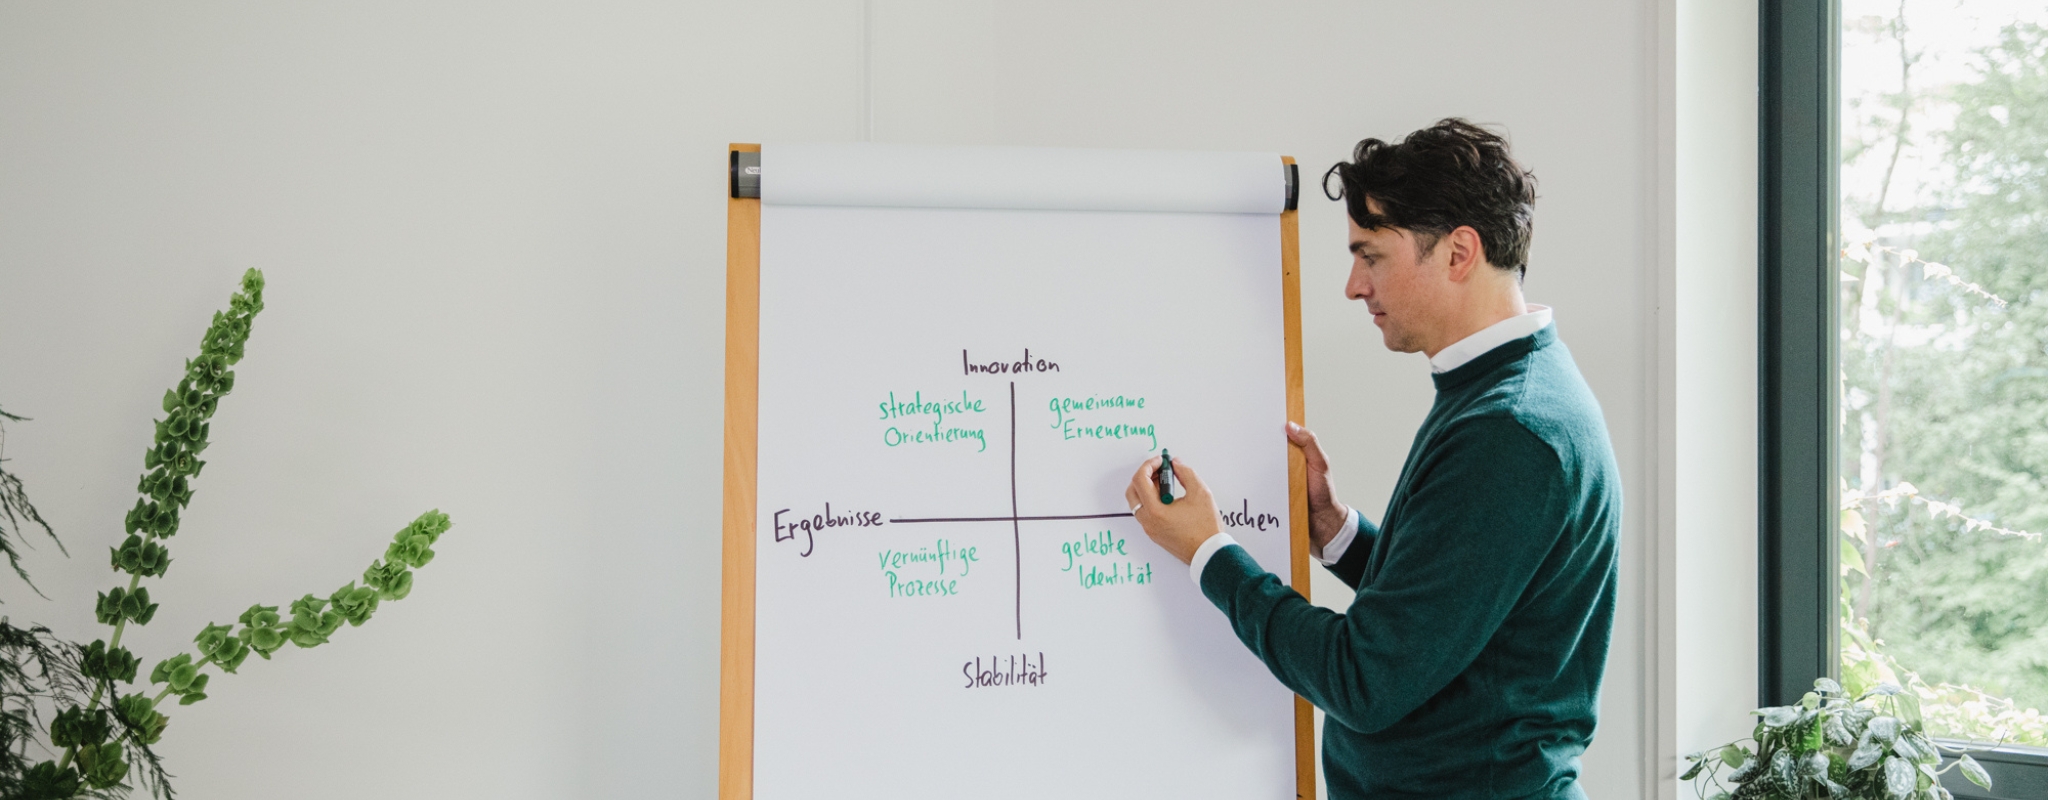 Innovation
strategische
Orientierung
gemeinsame
Erneuerung
Ergebnisse
nschen
vernünftige
Prozesse
gelebte
Identität
Stabilität